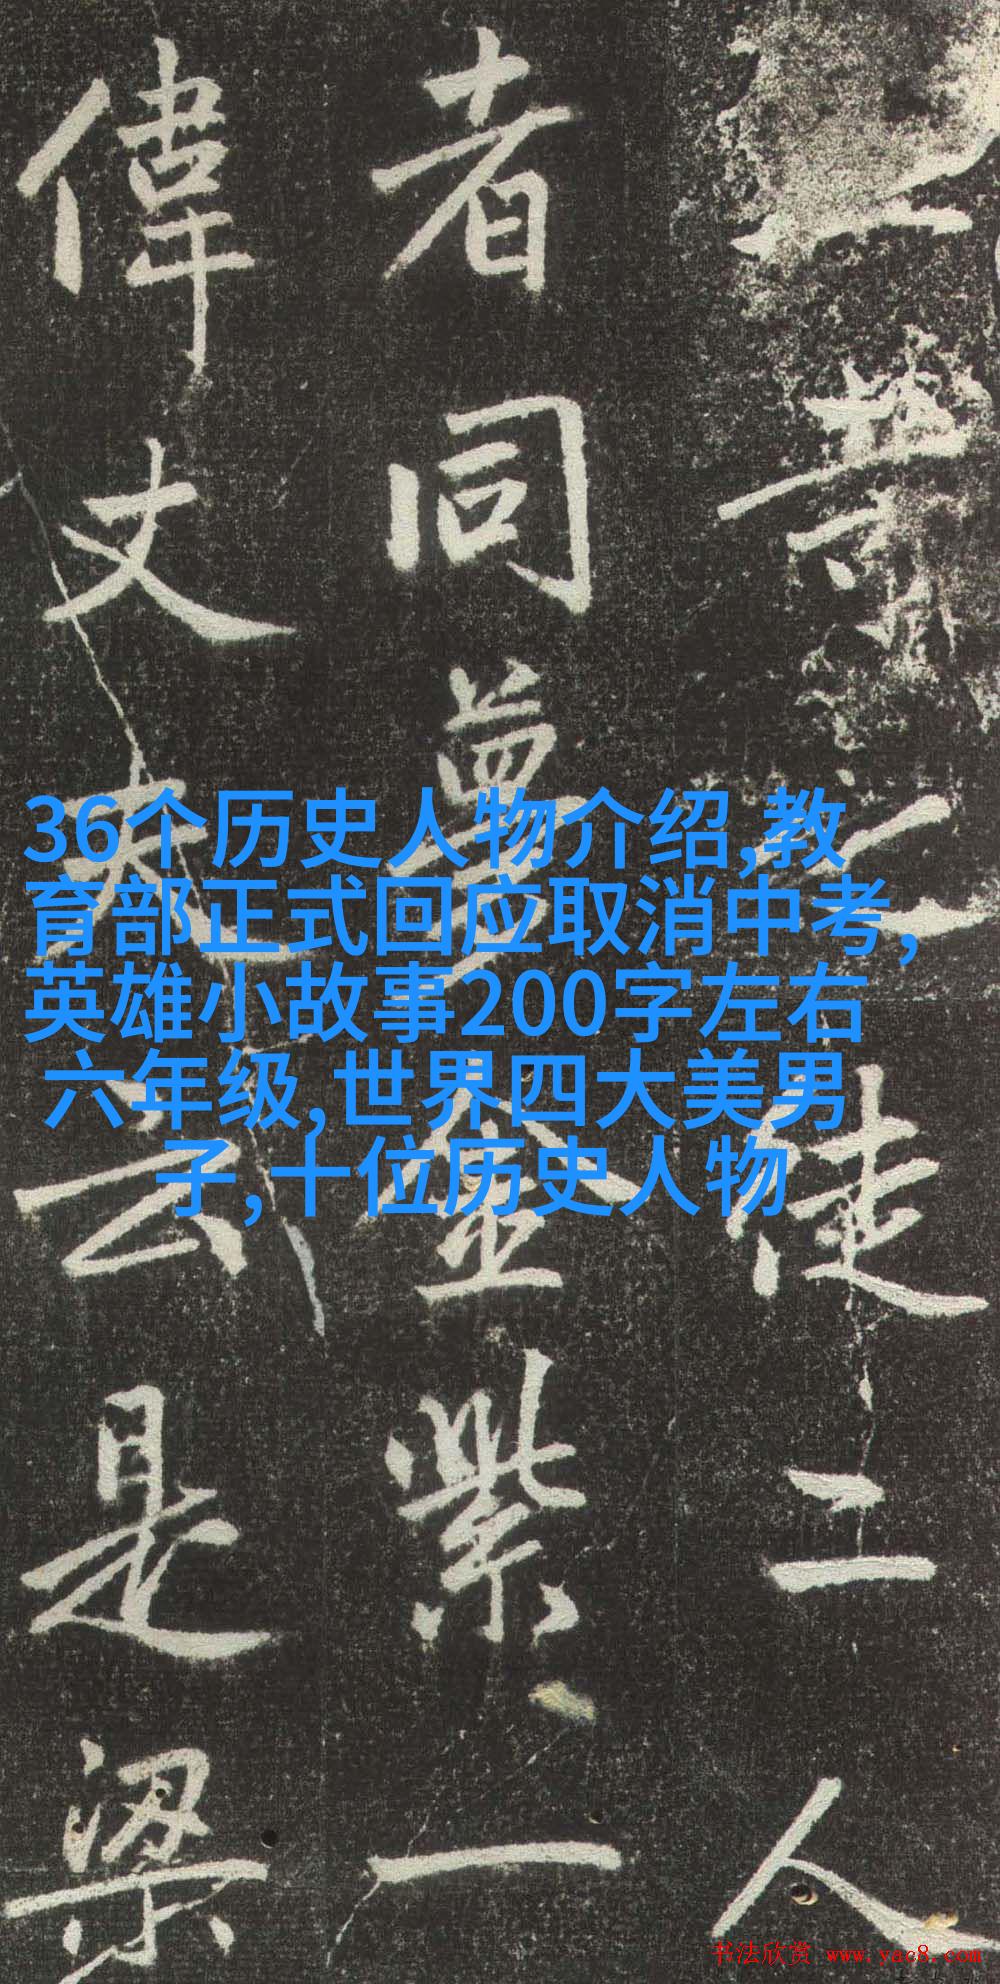 業徒二人
者同夢金紫一
偉丈夫云是梁
36个历史人物介绍,教
育部正式回应取消中考,
英雄小故事200字左右
六年级,世界四大美男
子,十位历史人物
书法欣赏 www.yac8.com